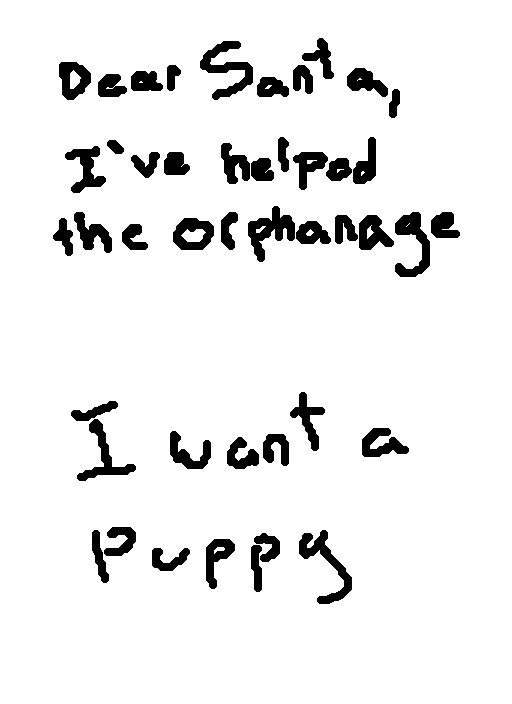 Dear Santa,
I've helped
the orphanage
I want a
puppy